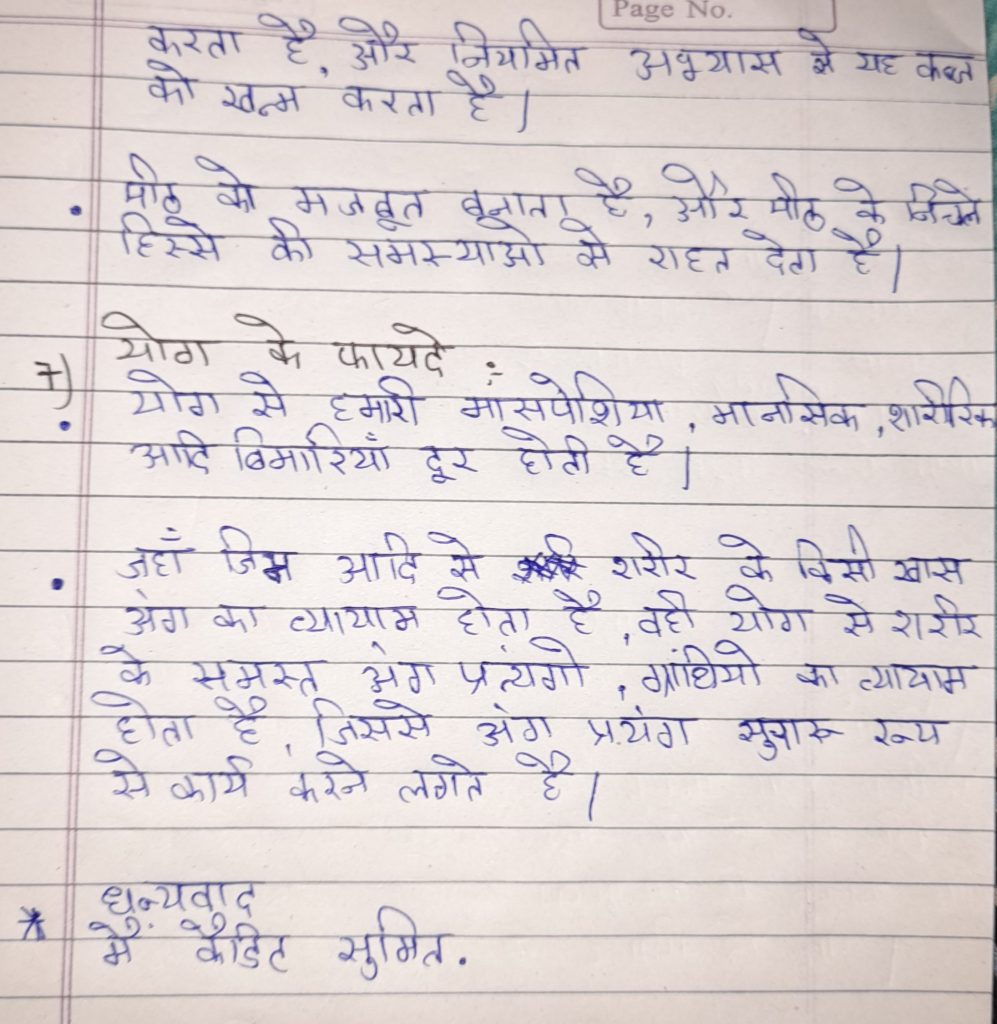 Page No.
करता है, और नियमित अभ्यास से यह कब्ज
को खत्म करता है।
• पीठ को मजबूत बनाता है, और पीठ के निचले
हिस्से की समस्याओ से राहत देता है।
7) योग के फायदे :
• योग से हमारी मासपेशिया, मानसिक, शारीरिक
आदि बिमारियाँ दूर होती है।
• जहाँ जिम आदि से शरीर के किसी खास
अंग का व्यायाम होता है, वही योग से शरीर
के समस्त अंग प्रत्यंगो, ग्रांथियो का व्यायाम
होता है, जिससे अंग प्रयंग सुचारू रूप
से कार्य करने लगते है।
* धन्यवाद
मैं कैडिट सुमित.